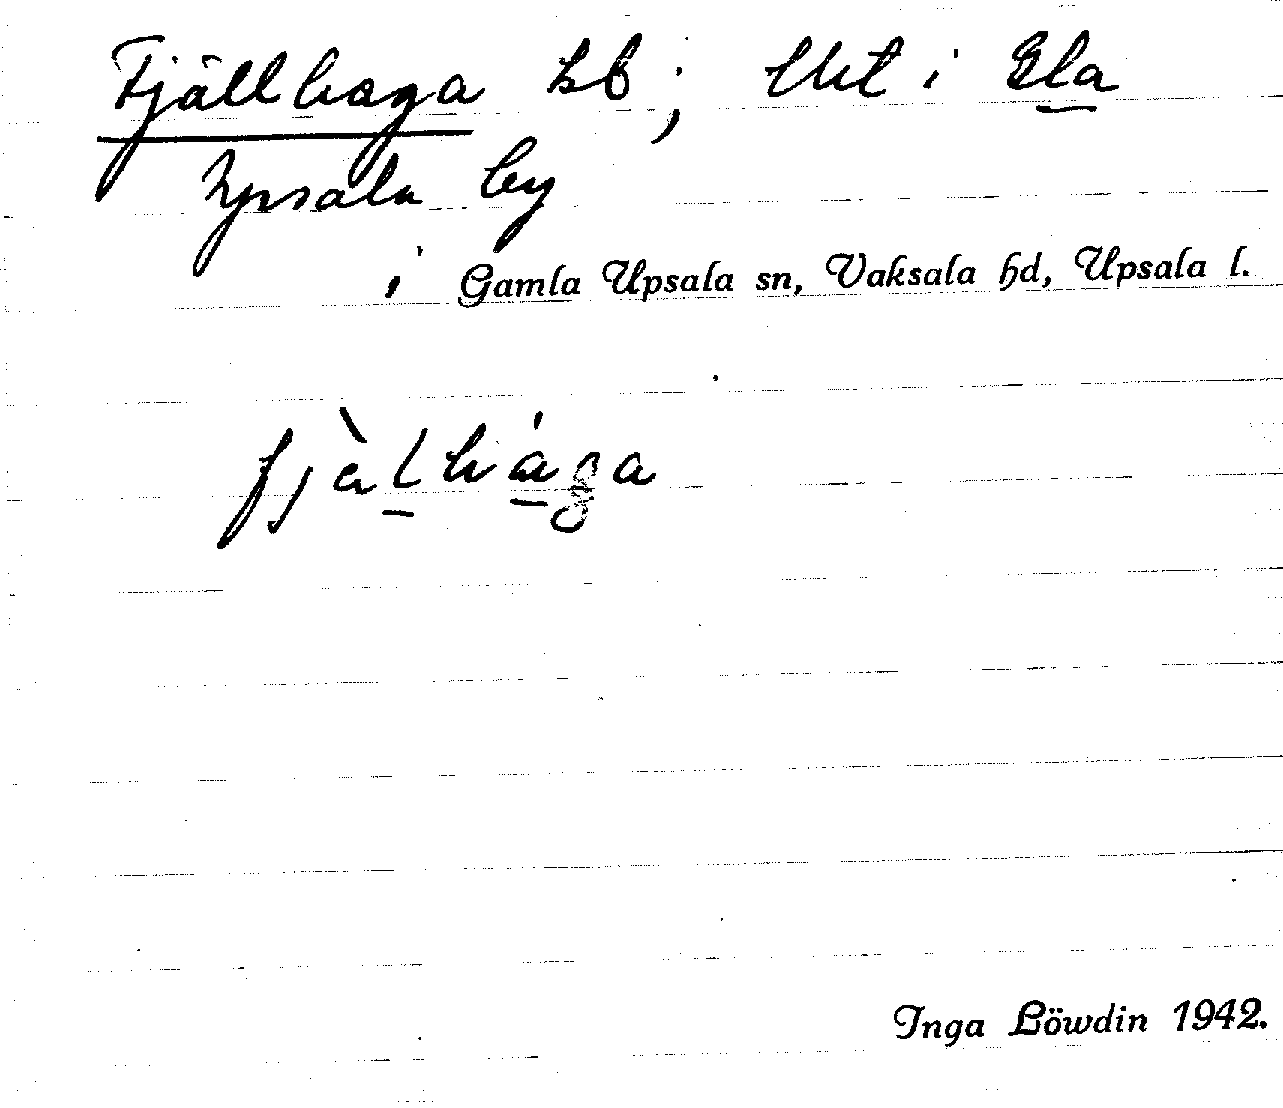 Fjällhaga hb; Utt i Gla
Upsala by
i Gamla Upsala sn, Vaksala hd, Upsala l.
fjàlhága
Inga Löwdin 1942.